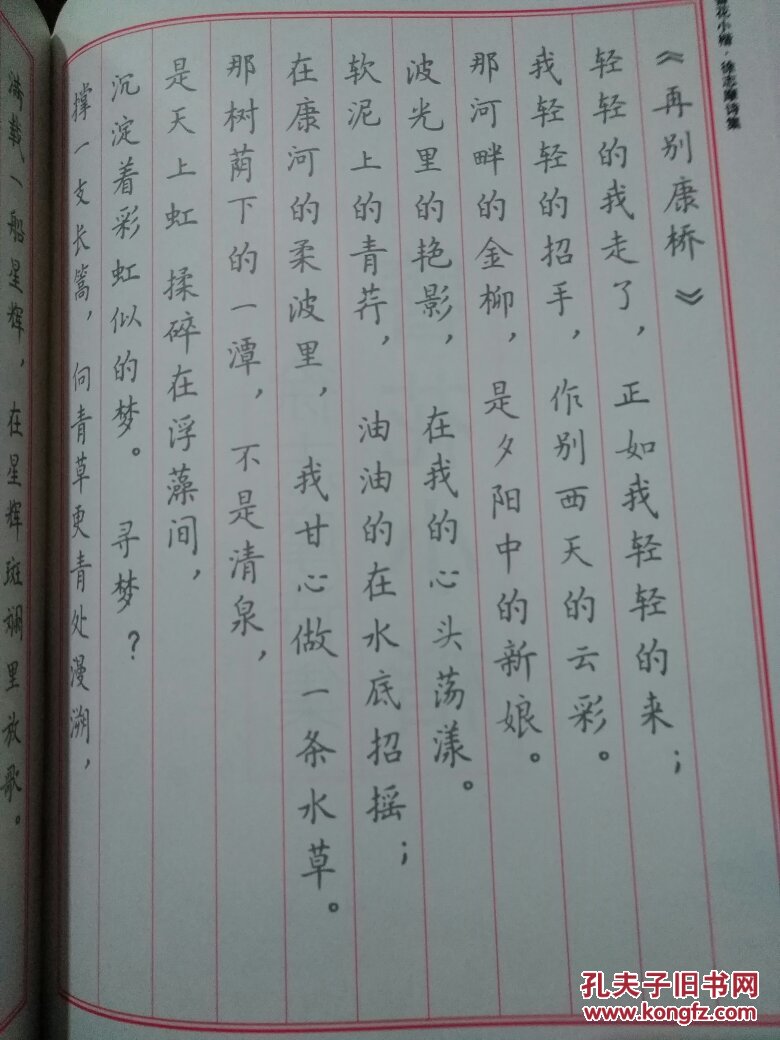 花小楷·徐志摩诗集
《再别康桥》
轻轻的我走了，正如我轻轻的来；
我轻轻的招手，作别西天的云彩。
那河畔的金柳，是夕阳中的新娘。
波光里的艳影，在我的心头荡漾。
软泥上的青荇，油油的在水底招摇；
在康河的柔波里，我甘心做一条水草。
那树荫下的一潭，不是清泉，
是天上虹 揉碎在浮藻间，
沉淀着彩虹似的梦。寻梦？
撑一支长篙，向青草更青处漫溯，
满载一船星辉，在星辉斑斓里放歌。
孔夫子旧书网
www.kongfz.com